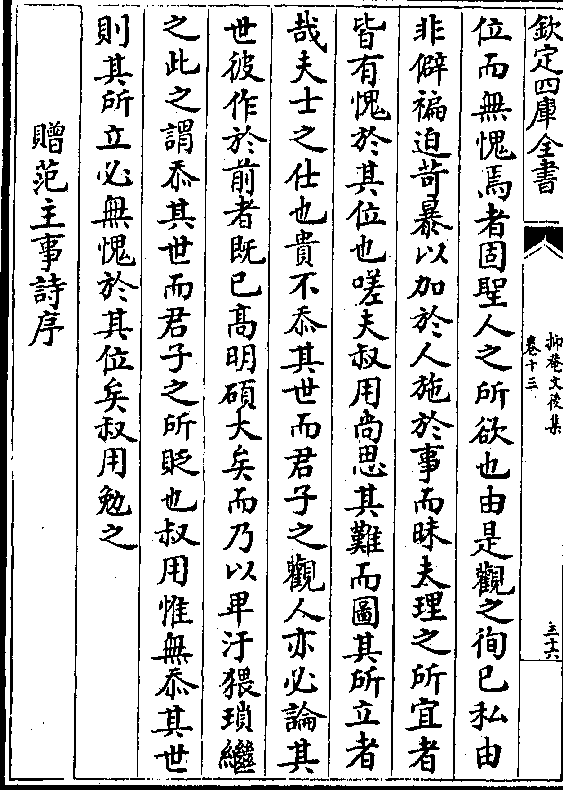 欽定四庫全書
抑菴文後集
卷十三
三十六
位而無愧焉者固聖人之所欲也由是觀之徇已私由
非僻褊迫苛暴以加於人施於事而昧夫理之所宜者
皆有愧於其位也嗟夫叔用尚思其難而圖其所立者
哉夫士之仕也貴不忝其世而君子之觀人亦必論其
世彼作於前者既已髙明碩大矣而乃以卑汙猥瑣繼
之此之謂忝其世而君子之所貶也叔用惟無忝其世
則其所立必無愧於其位矣叔用勉之
贈范主事詩序